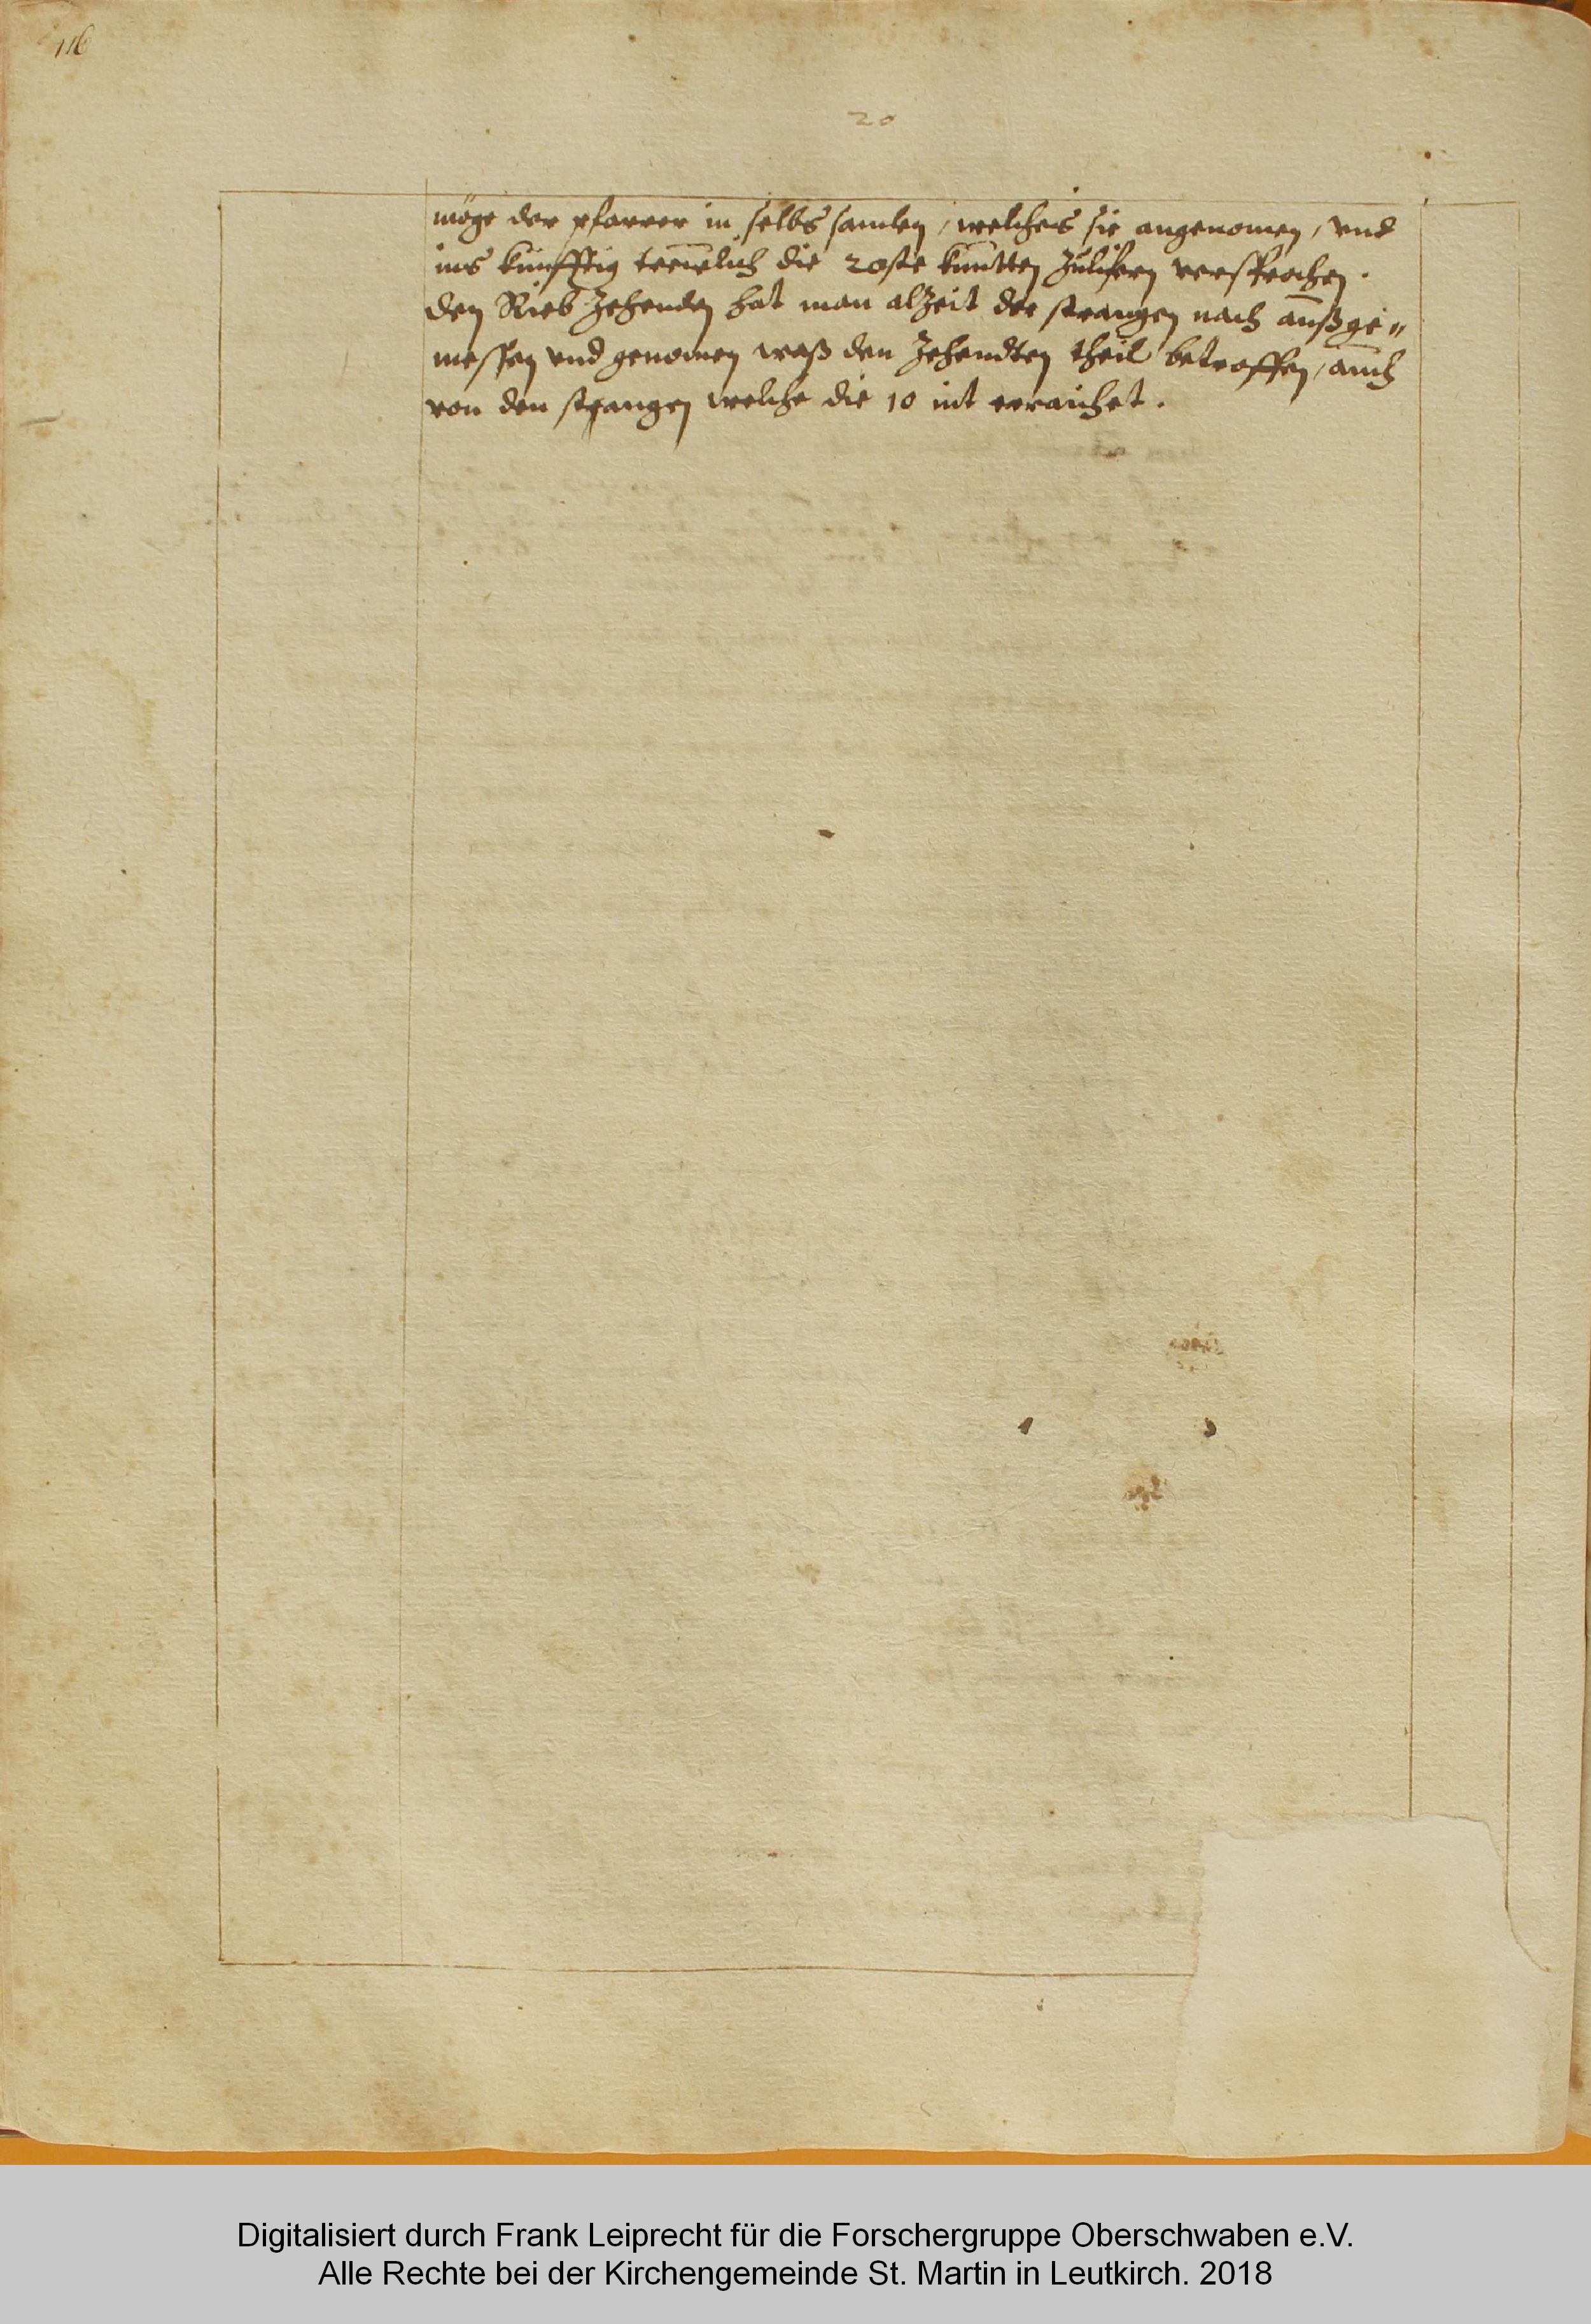 116
20
möge der pfarrer in selbs samlen, welches sie angenomen, vnd
ins künfftig trewlich die 20ste kuntten zuliffern versprochen.
den Rieb Zehenden hat man alzeit der strangen nach außge„
messen vnd genomen waß den Zehendten theil betroffen, auch
von den strangen welche die 10 nit erraichet.
Digitalisiert durch Frank Leiprecht für die Forschergruppe Oberschwaben e.V.
Alle Rechte bei der Kirchengemeinde St. Martin in Leutkirch. 2018